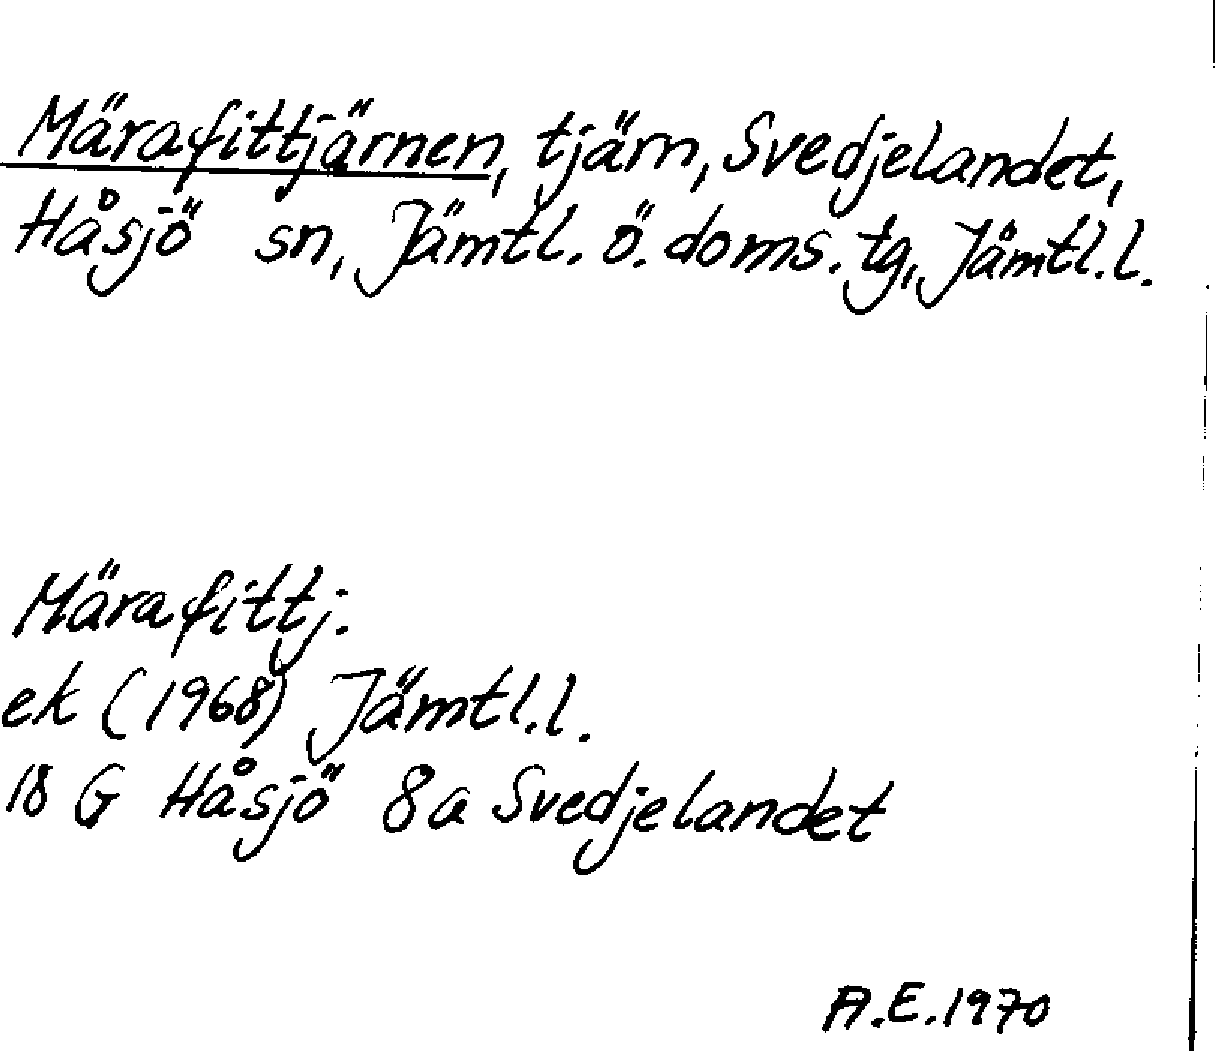 Märafittjärnen, tjärn, Svedjelandet,
Håsjö sn, Jämtl. ö. doms. tg, Jämtl. l.
Märafittj.
ek (1968) Jämtl. l.
18 G Håsjö 8a Svedjelandet
A.E. 1970